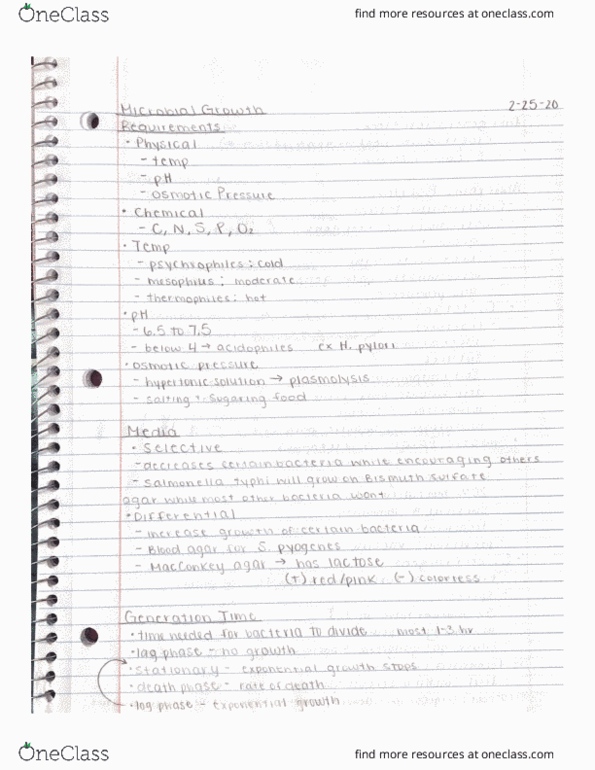 OneClass
find more resources at oneclass.com
Microbial Growth 2-25-20
Requirements
• Physical
- temp
- pH
- osmotic Pressure
• Chemical
- C, N, S, P, O2
• Temp
- psychrophiles: cold
- mesophiles: moderate
- thermophiles: hot
• pH
- 6.5 to 7.5
- below 4 → acidophiles ex H. pylori
• osmotic pressure
- hypertonic solution → plasmolysis
- salting + sugaring food
Media
• Selective
- decreases certain bacteria while encouraging others
- Salmonella typhi will grow on Bismuth sulfate
agar while most other bacteria wont
• Differential
- increase growth of certain bacteria
- Blood agar for S. pyogenes
- MacConkey agar → has lactose
(+) red/pink (-) colorless
Generation Time
• time needed for bacteria to divide most 1-3 hr
• lag phase - no growth
• stationary - exponential growth stops
• death phase - rate of death
• log phase - exponential growth
OneClass
find more resources at oneclass.com